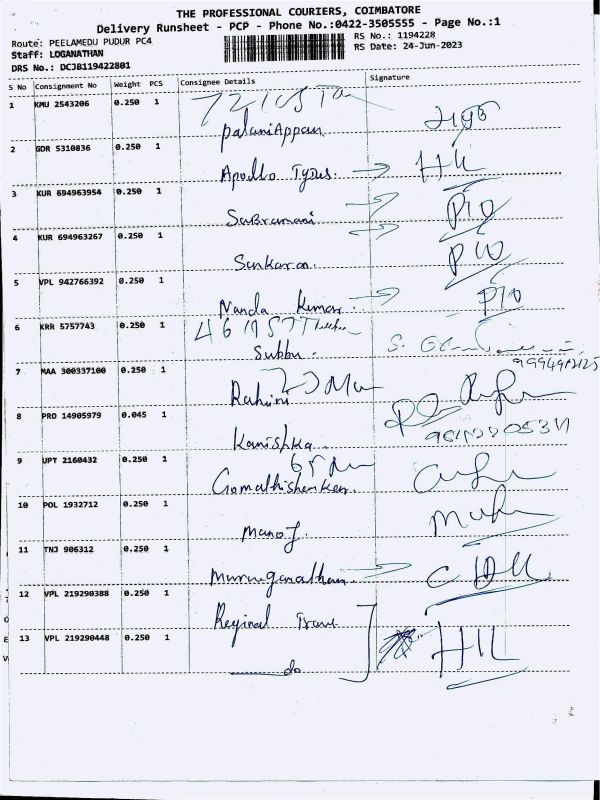 THE PROFESSIONAL COURIERS, COIMBATORE
Delivery Runsheet - PCP - Phone No.:0422-3505555 - Page No.:1
Route: PEELAMEDU PUDUR PC4
RS No.: 1194228
Staff: LOGANATHAN
RS Date: 24-Jun-2023
DRS No.: DCJB119422801
S No Consignment No Weight PCS Consignee Details Signature
1 KMU 2543206 0.250 1
PalaniAppan
2 GDR 5310836 0.250 1
Apollo Tyres. HIL
3 KUR 694963954 0.250 1
SuBramani P10
4 KUR 694963267 0.250 1
Sankaran. P10
5 VPL 942766392 0.250 1
Nanda Kumar. P10
6 KRR 5757743 0.250 1
Subbu.
7 MAA 300337100 0.250 1
Rahini
8 PRO 14905979 0.045 1
Kanishka
9 UPT 2160432 0.250 1
Gomathishankar.
10 POL 1932712 0.250 1
Manoj.
11 TNJ 906312 0.250 1
Muruganatham
12 VPL 219290388 0.250 1
Reginal Trave
13 VPL 219290448 0.250 1
do HIL